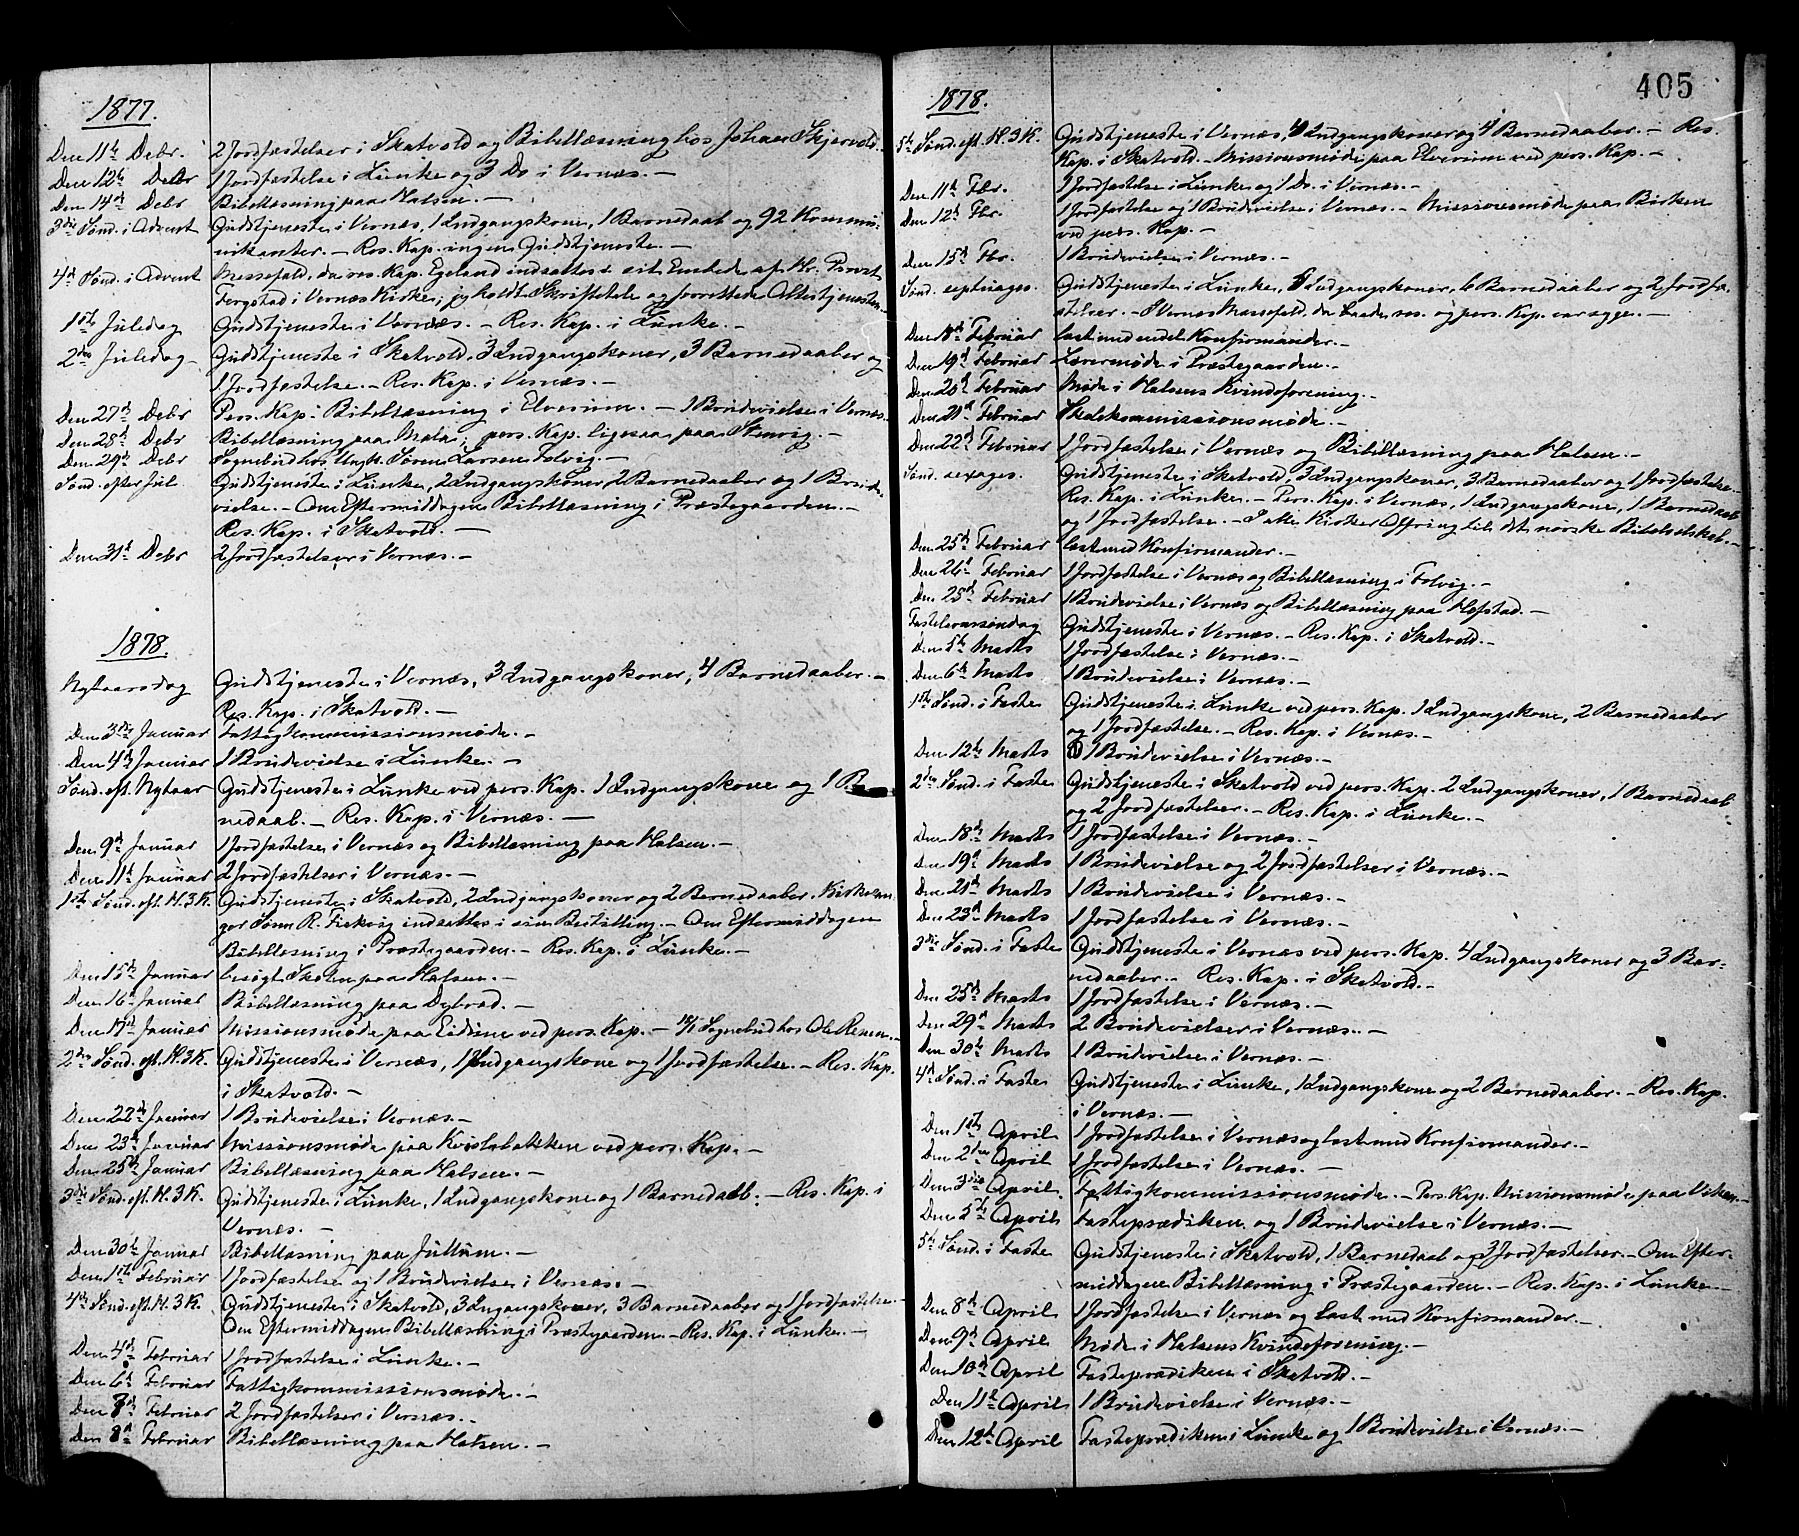 1877.
Den 11te Debr. 2 Jordfæstelser i Skatvold og Bibellæsning hos Johan Skjervold.
Den 12te Debr 1 Jordfæstelse i Lünke og 3 Do i Vernæs. —
Den 14de Debr Bibellæsning paa Halsen. —
3die Sønd. i Advent Gudstjeneste i Vernæs, 1 Indgangskone, 1 Barnedaab og 92 Kommu-
nikanter. — Res. Kap. ingen Gudstjeneste. —
4de Sønd. i Advent Messefald, da res. Kap. Egeland indsattes i sit Embede af Hr. Provst
Fergstad i Vernæs Kirke; jeg holdt Skriftetale og forrettede Altertjenesten.
1ste Juledag Gudstjeneste i Vernæs. — Res. Kap. i Lünke. —
2den Juledag — Gudstjeneste i Skatvold, 3 Indgangskoner, 3 Barnedaaber og
1 Jordfæstelse. — Res. Kap. i Vernæs. —
Den 27de Debr Pers. Kap. Bibellæsning i Elverum. — 1 Brudevielse i Vernæs.
Den 28de Debr Bibellæsning paa Mæla; pers. Kap. ligesaa paa Stenvig. —
Den 29de Debr Sognebud hos Ungk. Søren Larsen Folvig. —
Sønd. efter Jul Gudstjeneste i Lünke, 2 Indgangskoner, 2 Barnedaaber og 1 Brude-
vielse. — Om Eftermiddagen Bibellæsning i Præstegaarden. —
Res. Kap. i Skatvold. —
Den 31te Debr 2 Jordfæstelser i Vernæs. —
1878.
Nytaarsdag Gudstjeneste i Vernæs, 3 Indgangskoner, 4 Barnedaaber. —
Res. Kap. i Skatvold. —
Den 3die Januar Fattigkommissionsmøde. —
Den 4de Januar 1 Brudevielse i Lünke. —
Sønd. eft. Nytaar Gudstjeneste i Lünke ved pers. Kap. 1 Indgangskone og 1 Bar-
nedaab. — Res. Kap. i Vernæs. —
Den 9de Januar 1 Jordfæstelse i Vernæs og Bibellæsning paa Halsen. —
Den 11te Januar 2 Jordfæstelser i Vernæs. —
1ste Sønd. eft. H. 3 K. Gudstjeneste i Skatvold, 2 Indgangskoner og 2 Barnedaaber. Kirkesan-
ger Sønn R. Fiskvig indsattes i sin Bestilling. — Om Eftermiddagen
Bibellæsning i Præstegaarden. — Res. Kap. i Lünke. —
Den 15de Januar besøgt Skolen paa Halsen. —
Den 16de Januar Bibellæsning paa Dybvad. —
Den 17de Januar Missionsmøde paa Eidum ved pers. Kap. — 18/1 Sognebud hos Ole Renem. —
2den Sønd. eft. H. 3 K. Gudstjeneste i Vernæs, 1 Indgangskone og 1 Jordfæstelse. — Res. Kap.
i Skatvold. —
Den 22de Januar 1 Brudevielse i Vernæs. —
Den 23de Januar Missionsmøde paa Kvislabakken ved pers. Kap. —
Den 25de Januar Bibellæsning paa Halsen. —
3die Sønd. eft. H. 3 K. Gudstjeneste i Lünke, 1 Indgangskone og 1 Barnedaab. — Res. Kap. i
Vernæs. —
Den 30te Januar Bibellæsning paa Jullum. —
Den 1ste Februar 1 Jordfæstelse og 1 Brudevielse i Vernæs. —
4de Sønd. eft. H. 3 K. Gudstjeneste i Skatvold, 3 Ingangskoner, 3 Barnedaaber og 1 Jordfæstelse. —
Om Eftermiddagen Bibellæsning i Præstegaarden. — Res. Kap. i Lünke. —
Den 4de Februar 1 Jordfæstelse i Lünke. —
Den 6te Februar Fattigkommissionsmøde. —
Den 7de Februar 2 Jordfæstelser i Vernæs. —
Den 8de Februar Bibellæsning paa Halsen. —
405
1878.
5te Sønd. eft. H. 3 K. Gudstjeneste i Vernæs, 4 Indgangskoner og 4 Barnedaaber. — Res.
Kap. i Skatvold. Missionsmøde paa Elverum ved pers. Kap. —
Den 11te Fbr. 1 Jordfæstelse i Lünke og 1 Do. i Vernæs. —
Den 12te Fbr. 1 Jordfæstelse og 1 Brudevielse i Vernæs. — Missionsmøde paa Birken
ved pers. Kap. —
Den 15de Fbr. 1 Brudevielse i Vernæs. —
Sønd. septuages. Gudstjeneste i Lünke, 5 Indgangskoner, 6 Barnedaaber og 2 Jordfæ-
stelser. — I Vernæs Messefald, da baade res. og pers. Kap. var syge. —
Den 18de Februar læst med endel Konfirmander. —
Den 19de Februar Lærermøde i Præstegaarden. —
Den 20de Februar Møde i Halsens Kvindeforening. —
Den 21de Februar Skolekommissionsmøde. —
Den 22de Februar 1 Jordfæstelse i Vernæs og Bibellæsning paa Halsen. —
Sønd. sexages. Gudstjeneste i Skatvold, 3 Indgangskoner, 3 Barnedaaber og 1 Jordfæstelse. —
Res. Kap. i Lünke. — Pers. Kap. i Vernæs, 1 Indgangskone, 1 Barnedaab
og 1 Jordfæstelse. — I alle Kirker Offring til det norske Bibelselskab. —
Den 25de Februar læst med Konfirmander. —
Den 26de Februar 1 Jordfæstelse i Vernæs og Bibellæsning i Folvig. —
Den 28de Februar 1 Brudevielse i Vernæs og Bibellæsning paa Hofstad. —
Fastelavnssøndag Gudstjeneste i Vernæs. — Res. Kap. i Skatvold. —
Den 5te Marts 1 Jordfæstelse i Vernæs. —
Den 6te Marts 1 Brudevielse i Vernæs. —
1ste Sønd. i Faste Gudstjeneste i Lünke ved pers. Kap. 1 Indgangskone, 2 Barnedaaber
og 1 Jordfæstelse. — Res. Kap. i Vernæs. —
Den 12te Marts 1 Brudevielse i Vernæs. —
2den Sønd. i Faste Gudstjeneste i Skatvold ved pers. Kap. 2 Indgangskoner, 1 Barnedaab
og 2 Jordfæstelser. — Res. Kap. i Lünke. —
Den 18de Marts 1 Jordfæstelse i Vernæs. —
Den 19de Marts 1 Brudevielse og 2 Jordfæstelser i Vernæs. —
Den 21de Marts 1 Brudevielse i Vernæs. —
Den 23de Marts 1 Jordfæstelse i Vernæs. —
3die Sønd. i Faste Gudstjeneste i Vernæs ved pers. Kap. 4 Indgangskoner og 3 Bar-
nedaaber. — Res. Kap. i Skatvold. —
Den 25de Marts 1 Jordfæstelse i Vernæs. —
Den 29de Marts 2 Brudevielser i Vernæs. —
Den 30te Marts 1 Brudevielse i Vernæs. —
4de Sønd. i Faste Gudstjeneste i Lünke, 1 Indgangskone og 2 Barnedaaber. — Res. Kap.
i Vernæs. —
Den 1ste April 1 Jordfæstelse i Vernæs og læst med Konfirmander. —
Den 2den April 1 Jordfæstelse i Vernæs. —
Den 3die April Fattigkommissionsmøde. — Pers. Kap. Missionsmøde paa Viken. —
Den 5te April Fasteprædiken og 1 Brudevielse i Vernæs. —
5te Sønd. i Faste Gudstjeneste i Skatvold, 1 Barnedaab og 3 Jordfæstelser. — Om Efter-
middagen Bibellæsning i Præstegaarden. — Res. Kap. i Lünke. —
Den 8de April 1 Jordfæstelse i Vernæs og læst med Konfirmander. —
Den 9de April Møde i Halsens Kvindeforening. —
Den 10de April Fasteprædiken i Skatvold. —
Den 11te April 1 Brudevielse i Vernæs. —
Den 12te April Fasteprædiken i Lünke og 1 Brudevielse i Vernæs. —